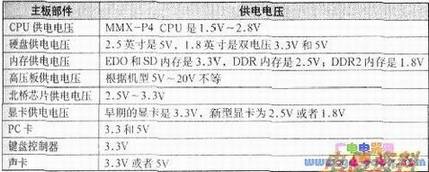 主板部件 供电电压
CPU 供电电压 MMX-P4 CPU 是 1.5V~2.8V
硬盘供电电压 2.5 英寸是 5V，1.8 英寸是双电压 3.3V 和 5V
内存供电电压 EDO 和 SD 内存是 3.3V，DDR 内存是 2.5V，DDR2 内存是 1.8V
高压板供电电压 根据机型 5V~20V 不等
北桥芯片供电电压 2.5V~3.3V
显卡供电电压 早期的显卡是 3.3V，新型显卡为 2.5V 或者 1.8V
PC 卡 3.3 和 5V
键盘控制器 3.3V
声卡 3.3V 或者 5V
广电电器网